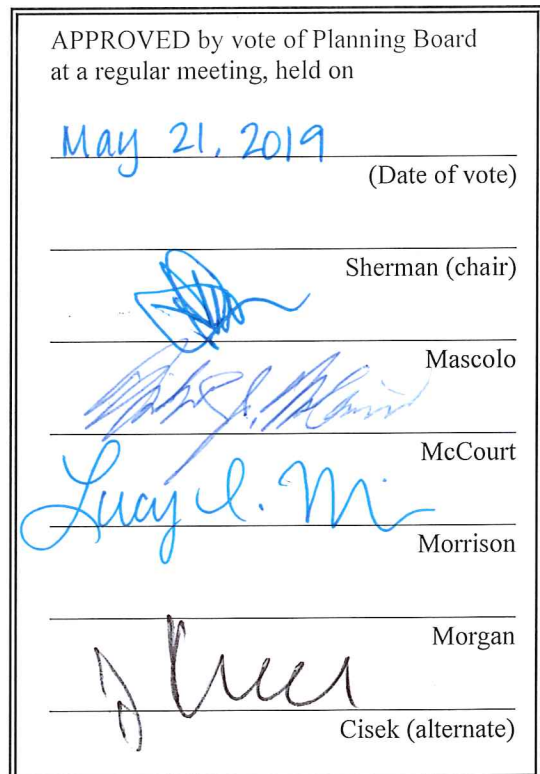 APPROVED by vote of Planning Board
at a regular meeting, held on
May 21, 2019
(Date of vote)
Sherman (chair)
Mascolo
McCourt
Lucy I. M
Morrison
Morgan
Cisek (alternate)